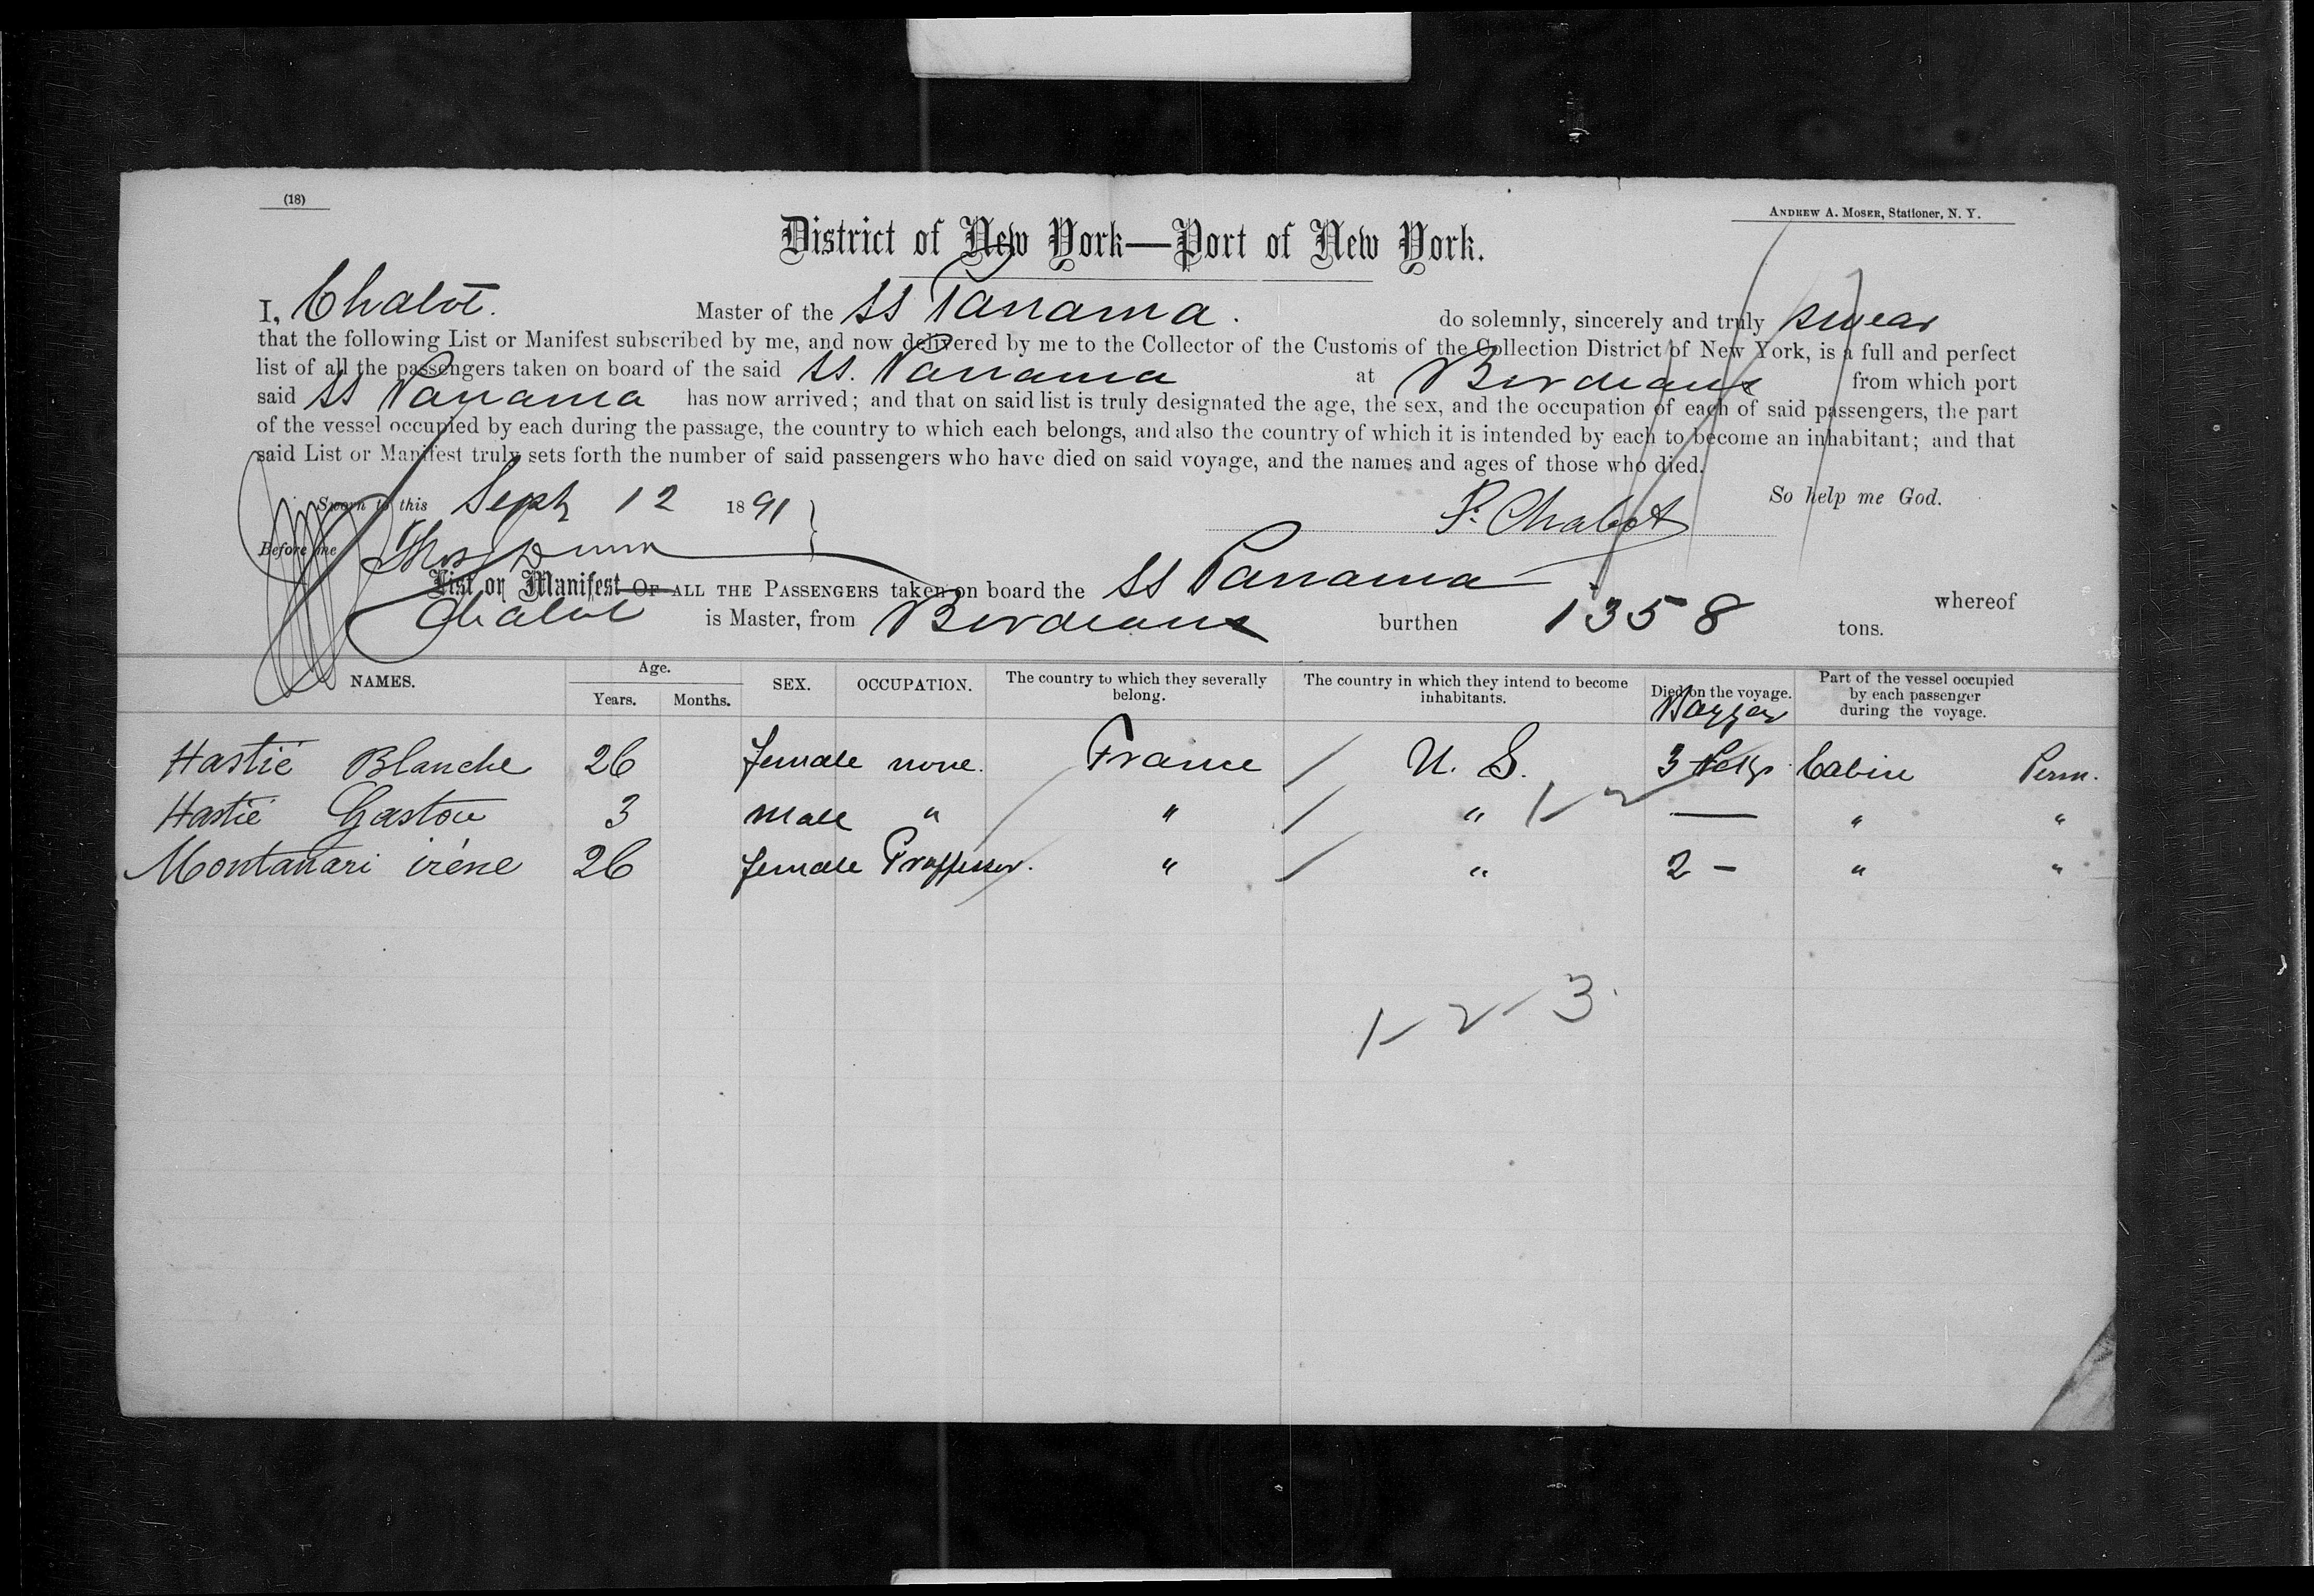 (18)
ANDREW A. MOSER, Stationer, N. Y.
District of New York—Port of New York.
I, Chabot. Master of the SS Panama. do solemnly, sincerely and truly swear
that the following List or Manifest subscribed by me, and now delivered by me to the Collector of the Customs of the Collection District of New York, is a full and perfect
list of all the passengers taken on board of the said SS. Panama at Bordeaux from which port
said SS Panama has now arrived; and that on said list is truly designated the age, the sex, and the occupation of each of said passengers, the part
of the vessel occupied by each during the passage, the country to which each belongs, and also the country of which it is intended by each to become an inhabitant; and that
said List or Manifest truly sets forth the number of said passengers who have died on said voyage, and the names and ages of those who died.
So help me God.
Sworn to this Sept 12 1891
P. Chabot
Before me Thos
List or Manifest OF ALL THE PASSENGERS taken on board the SS Panama whereof
Chabot is Master, from Bordeaux burthen 1358 tons.
NAMES. Age. Years. Months. SEX. OCCUPATION. The country to which they severally belong. The country in which they intend to become inhabitants. Died on the voyage. Part of the vessel occupied by each passenger during the voyage.
Hastié Blanche 26 female none. France / U. S. 3 Cabin Perm.
Hastié Gaston 3 Male " " / " 1-2 — " "
Montanari irène 26 female Proffessor. " / " 2 — " "
1-2-3.